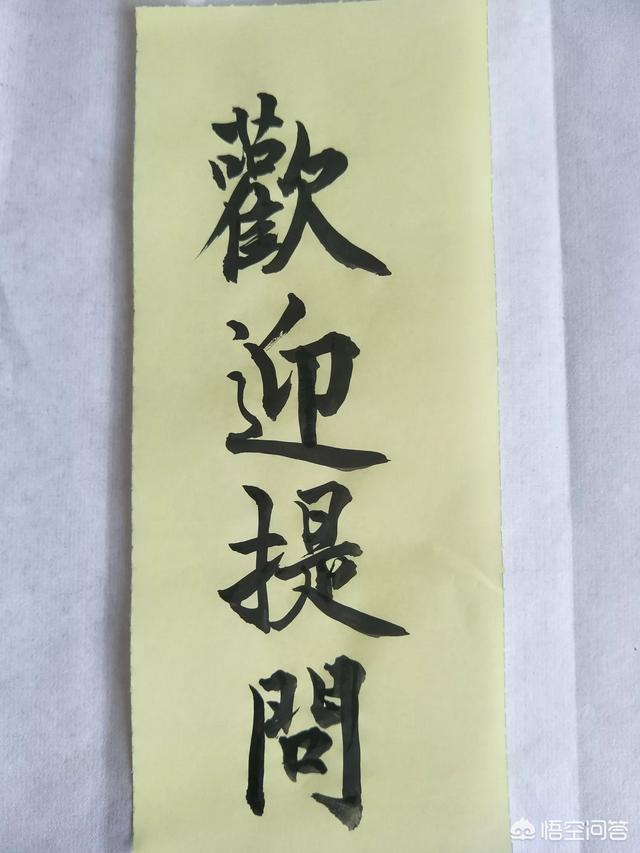 歡迎提問
悟空问答